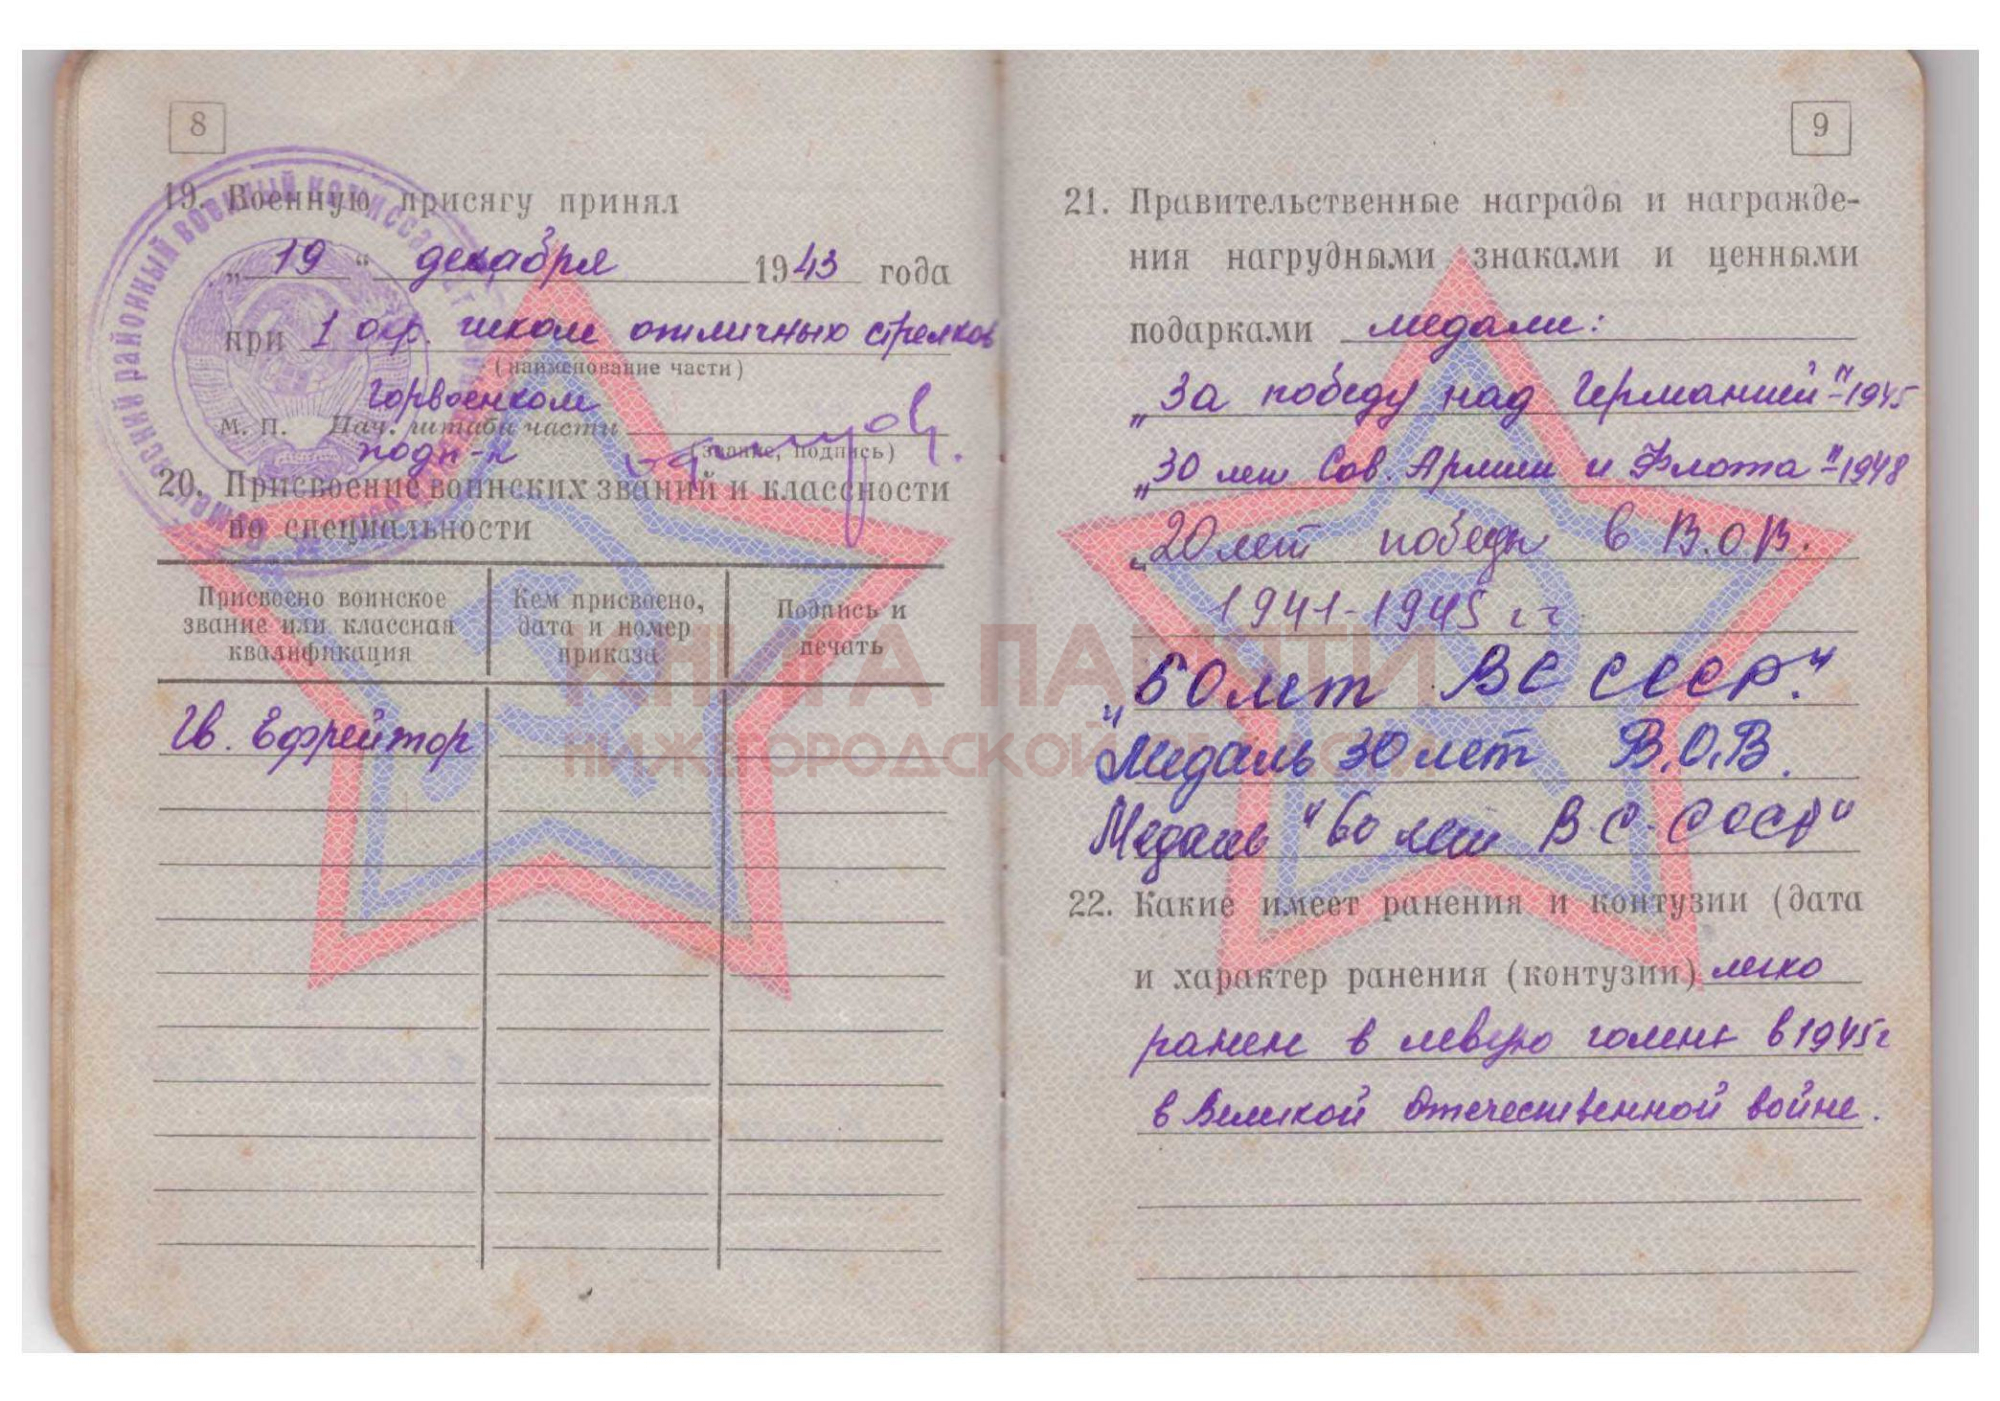 8
19. Военную присягу принял
„ 19 “ декабря 1943 года
при 1 окр. школе отличных стрелков
(наименование части)
Горвоенком
М. П. Нач. штаба части
подп-к
(звание, подпись)
20. Присвоение воинских званий и классности
по специальности
Присвоено воинское звание или классная квалификация
Кем присвоено, дата и номер приказа
Подпись и печать
Гв. Ефрейтор
районный военный комиссариат
9
21. Правительственные награды и награжде-
ния нагрудными знаками и ценными
подарками медали:
„За победу над Германией"-1945
„30 лет Сов. Армии и Флота"-1948
„20 лет победы в В.О.В.
1941-1945 гг.
„50 лет ВС СССР."
Медаль 30 лет В.О.В.
Медаль "60 лет В.С. СССР"
22. Какие имеет ранения и контузии (дата
и характер ранения (контузии) легко
ранен в левую голень в 1945г
в Великой Отечественной войне.
КНИГА ПАМЯТИ
НИЖЕГОРОДСКОЙ ОБЛАСТИ